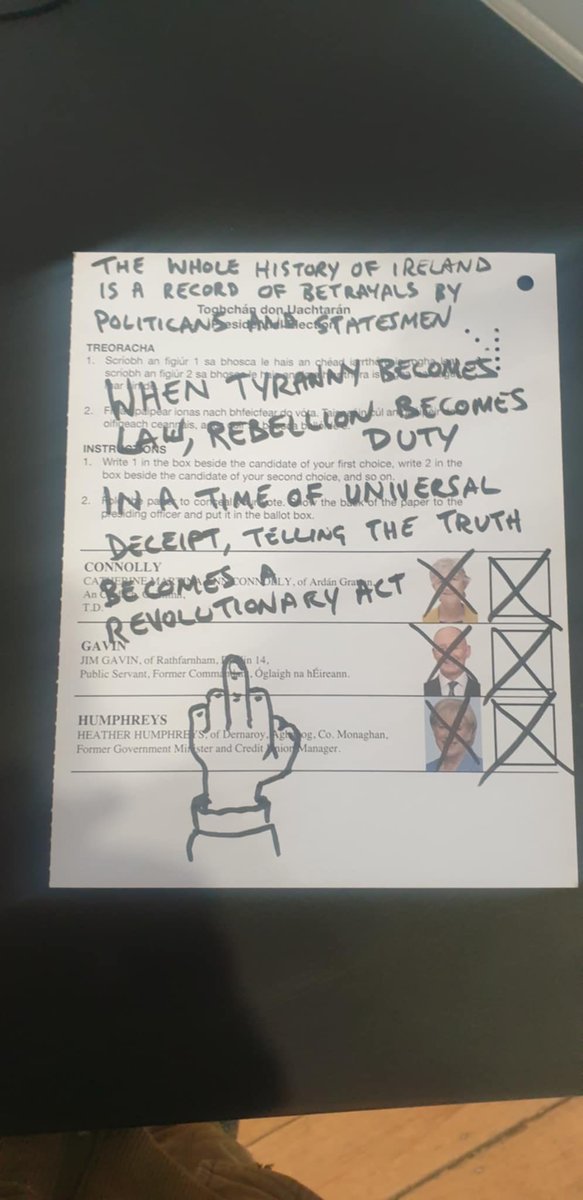 THE WHOLE HISTORY OF IRELAND
IS A RECORD OF BETRAYALS BY
Toghchán don Uachtarán
POLITICANS AND STATESMEN
Presidential Election
TREORACHA
1. Scríobh an figiúr 1 sa bhosca le hais an chéad
scríobh an figiúr 2 sa
WHEN TYRANNY BECOMES
2. páipéar ionas nach bhfeicfear do vóta.
LAW, REBELLION BECOMES
DUTY
INSTRUCTIONS
1. Write 1 in the box beside the candidate of your first choice, write 2 in the
box beside the candidate of your second choice, and so on.
2. paper to conceal your vote. Show the back of the paper to the
presiding officer and put it in the ballot box.
IN A TIME OF UNIVERSAL
DECEIPT, TELLING THE TRUTH
BECOMES A
REVOLUTIONARY ACT
CONNOLLY
CONNOLLY, of Ardán
An
T.D.
GAVIN
JIM GAVIN, of Rathfarnham, 14,
Public Servant, Former Óglaigh na hÉireann.
HUMPHREYS
HEATHER HUMPHREYS, of Dernaroy, Co. Monaghan,
Former Government Minister and Credit Union Manager.